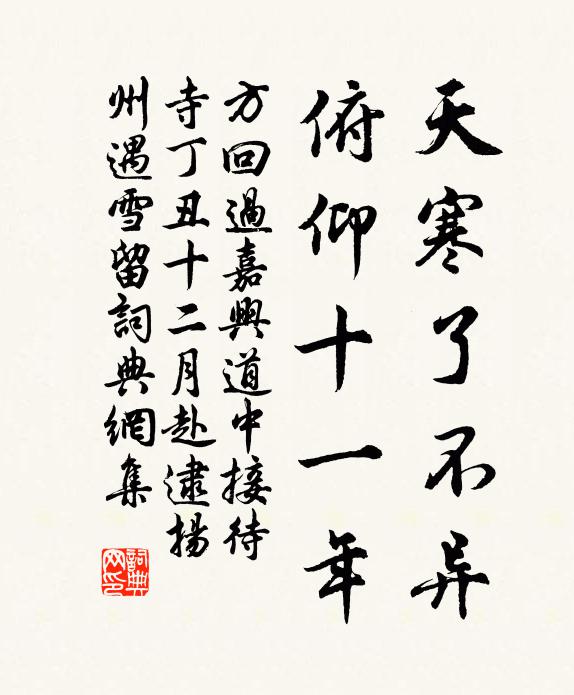 天寒了不异
俯仰十一年
方回過嘉興道中接待
寺丁丑十二月赴逮揚
州遇雪留詞典網集
詞典網印